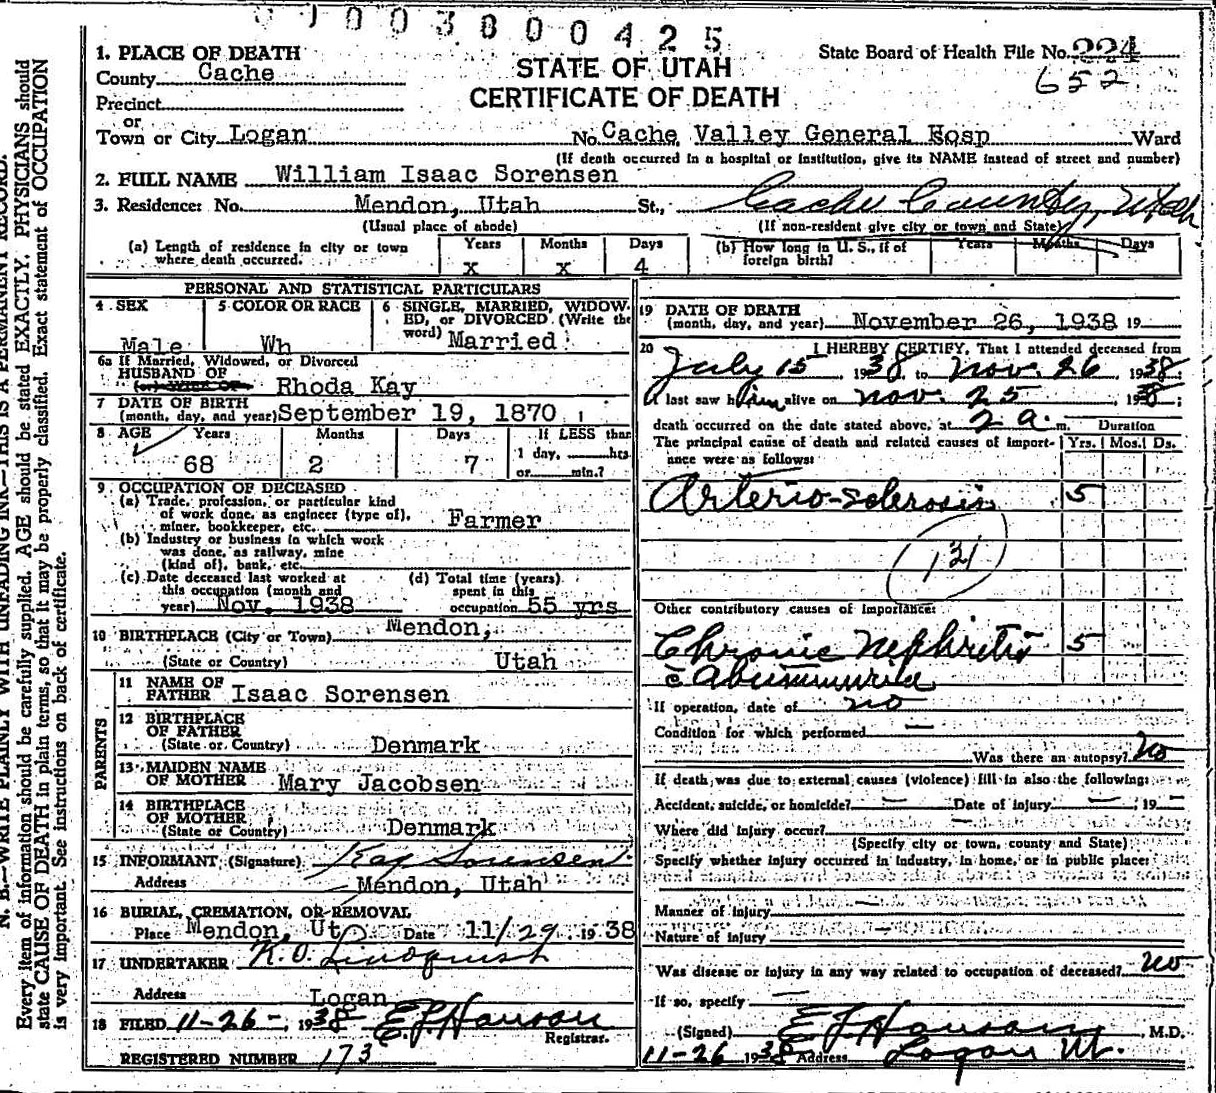 0 1 0 0 3 8 0 0 4 2 5
1. PLACE OF DEATH
County Cache
Precinct
or
Town or City Logan
STATE OF UTAH
CERTIFICATE OF DEATH
State Board of Health File No. 224
652
No. Cache Valley General Hosp Ward
(If death occurred in a hospital or institution, give its NAME instead of street and number)
2. FULL NAME William Isaac Sorensen
3. Residence: No. Mendon, Utah St., Cache County, Utah
(Usual place of abode) (If non-resident give city or town and State)
(a) Length of residence in city or town where death occurred. Years x Months x Days 4
(b) How long in U. S., if of foreign birth? Years Months Days
PERSONAL AND STATISTICAL PARTICULARS
4 SEX Male
5 COLOR OR RACE Wh
6 SINGLE, MARRIED, WIDOWED, or DIVORCED (Write the word) Married
6a If Married, Widowed, or Divorced
HUSBAND OF
(or) WIFE OF Rhoda Kay
7 DATE OF BIRTH
(month, day, and year) September 19, 1870
8 AGE Years 68 Months 2 Days 7 If LESS than 1 day, hrs or min.?
9 OCCUPATION OF DECEASED
(a) Trade, profession, or particular kind
of work done, as engineer (type of),
miner, bookkeeper, etc. Farmer
(b) Industry or business in which work
was done, as railway, mine
(kind of), bank, etc.
(c) Date deceased last worked at
this occupation (month and
year) Nov. 1938
(d) Total time (years)
spent in this
occupation 55 yrs
10 BIRTHPLACE (City or Town) Mendon,
(State or Country) Utah
PARENTS
11 NAME OF
FATHER Isaac Sorensen
12 BIRTHPLACE
OF FATHER
(State or Country) Denmark
13 MAIDEN NAME
OF MOTHER Mary Jacobsen
14 BIRTHPLACE
OF MOTHER
(State or Country) Denmark
15 INFORMANT (Signature) Kay Sorensen
Address Mendon, Utah
16 BURIAL, CREMATION, OR REMOVAL
Place Mendon, Ut Date 11/29 1938
17 UNDERTAKER K.O. Lindquist
Address Logan
18 FILED 11-26-, 1938 E L Hanson
Registrar.
REGISTERED NUMBER 173
19 DATE OF DEATH
(month, day, and year) November 26, 1938 19
20 I HEREBY CERTIFY, That I attended deceased from
July 15, 1938, to Nov. 26 1938;
I last saw him alive on Nov. 25, 1938;
death occurred on the date stated above, at 2 a. m. Duration
The principal cause of death and related causes of importance were as follows: Yrs. Mos. Ds.
Arterio-sclerosis 5
131
Other contributory causes of importance:
Chronic Nephritis 5
c Abummuria
If operation, date of no
Condition for which performed —
Was there an autopsy? No
If death was due to external causes (violence) fill in also the following:
Accident, suicide, or homicide? — Date of injury — , 19 —
Where did injury occur? —
(Specify city or town, county and State)
Specify whether injury occurred in industry, in home, or in public place:
Manner of injury —
Nature of injury —
Was disease or injury in any way related to occupation of deceased? no
If so, specify —
(Signed) E L Hanson M.D.
11-26 1938 Address Logan Ut.
N. B.—WRITE PLAINLY WITH UNFADING INK—THIS IS A PERMANENT RECORD.
Every item of information should be carefully supplied. AGE should be stated EXACTLY. PHYSICIANS should
state CAUSE OF DEATH in plain terms, so that it may be properly classified. Exact statement of OCCUPATION
is very important. See instructions on back of certificate.